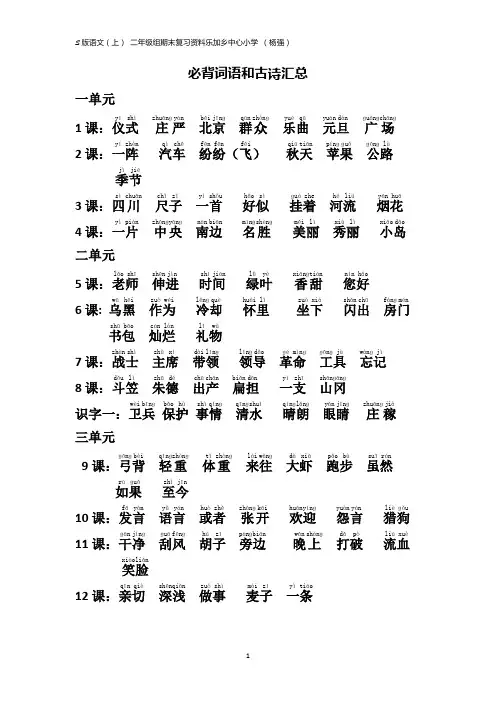 S版语文（上） 二年级组期末复习资料乐加乡中心小学 （杨强）
必背词语和古诗汇总
一单元
yí shì zhuāng yán běi jīng qún zhòng yuè qǔ yuán dàn guǎngchǎng
1课：仪式 庄严 北京 群众 乐曲 元旦 广场
yí zhèn qì chē fēn fēn fēi qiū tiān píng guǒ gōng lù
2课：一阵 汽车 纷纷（飞） 秋天 苹果 公路
jì jié
季节
sì chuān chǐ zǐ yì shǒu hǎo sì guà zhe hé liú yān huā
3课：四川 尺子 一首 好似 挂着 河流 烟花
yí piàn zhōngyāng nán biān míngshèng měi lì xiù lì xiǎo dǎo
4课：一片 中央 南边 名胜 美丽 秀丽 小岛
二单元
lǎo shī shēn jìn shí jiān lǜ yè xiāngtián nín hǎo
5课：老师 伸进 时间 绿叶 香甜 您好
wū hēi zuò wéi lěng què huái lǐ zuò xià shǎn chū fáng mén
6课：乌黑 作为 冷却 怀里 坐下 闪出 房门
shū bāo càn làn lǐ wù
书包 灿烂 礼物
zhàn shì zhǔ xí dài lǐng lǐng dǎo gé mìng gōng jù wàng jì
7课：战士 主席 带领 领导 革命 工具 忘记
dǒu lì zhū dé chū chǎn biǎn dàn yì zhī shāngāng
8课：斗笠 朱德 出产 扁担 一支 山冈
wèi bīng bǎo hù shì qíng qīngshuǐ qínglǎng yǎn jīng zhuāng jià
识字一：卫兵 保护 事情 清水 晴朗 眼睛 庄稼
三单元
gōng bèi qīngzhòng tǐ zhòng lái wǎng dà xiā pǎo bù suī rán
9课：弓背 轻重 体重 来往 大虾 跑步 虽然
rú guǒ zhì jīn
如果 至今
fā yán yǔ yán huò zhě zhāng kāi huānyíng yuàn yán liè gǒu
10课：发言 语言 或者 张开 欢迎 怨言 猎狗
gān jìng guā fēng hú zi pángbiān wǎn shàng dǎ pò liú xuè
11课：干净 刮风 胡子 旁边 晚上 打破 流血
xiàoliǎn
笑脸
qīn qiè shēnqiǎn zuò shì mài zi yì tiáo
12课：亲切 深浅 做事 麦子 一条
1